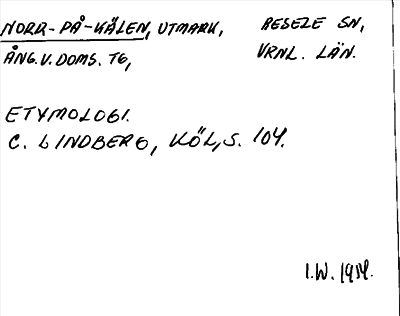 NORR-PÅ-KÄLEN, UTMARK, RESELE SN,
ÅNG.V.DOMS. TG, VRNL. LÄN.
ETYMOLOGI.
C. LINDBERG, KÖL, S. 104.
I.W.